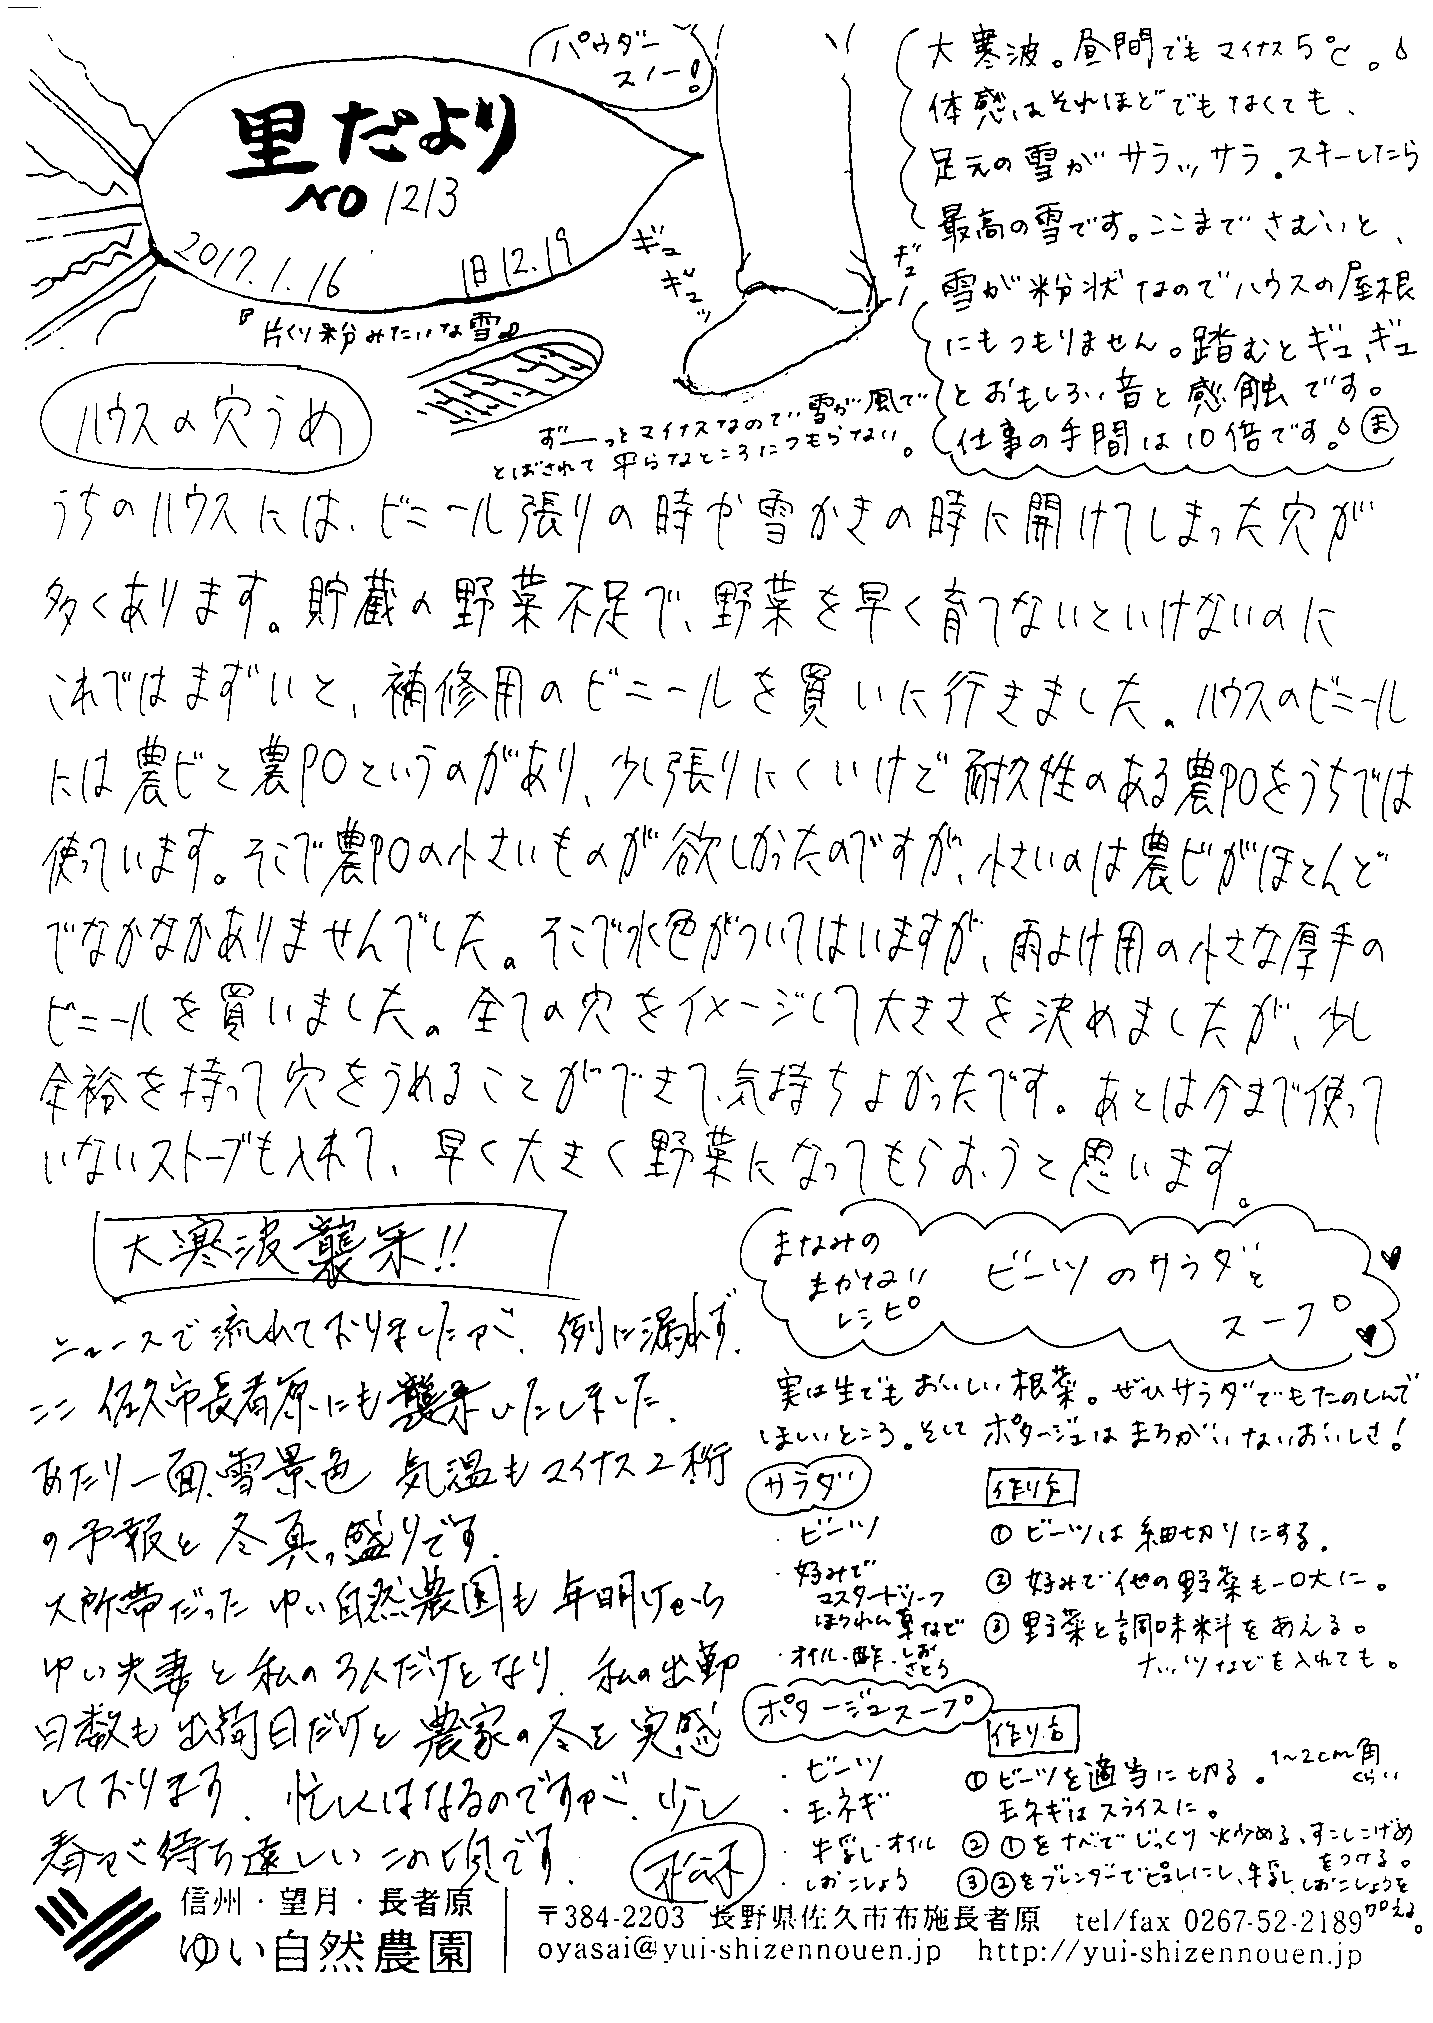 里だより
NO 1213
2017.1.16 旧12.19
『片くり粉みたいな雪』
パウダー
スノー!
ギュ
ギュッ
ギュー
大寒波。昼間でもマイナス5℃。
体感はそれほどでもなくても、
足元の雪がサラッサラ。スキーしたら
最高の雪です。ここまでさむいと、
雪が粉状なのでハウスの屋根
にもつもりません。踏むとギュ、ギュ
とおもしろい音と感触です。
仕事の手間は10倍です。ま
ずーっとマイナスなので、雪が風で
とばされて平らなところにつもらない。
ハウスの穴うめ
うちのハウスには、ビニール張りの時や雪かきの時に開けてしまった穴が
多くあります。貯蔵の野菜不足で、野菜を早く育てないといけないのに
これではまずいと、補修用のビニールを買いに行きました。ハウスのビニール
には農ビと農POというのがあり、少し張りにくいけど耐久性のある農POをうちでは
使っています。そこで農POの小さいものが欲しかったのですが、小さいのは農ビがほとんど
でなかなかありませんでした。そこで水色がついてはいますが、雨よけ用の小さな厚手の
ビニールを買いました。全ての穴をイメージして大きさを決めましたが、少し
余裕を持って穴をうめることができて、気持ちよかったです。あとは今まで使って
いないストーブも入れて、早く大きく野菜になってもらおうと思います。
大寒波襲来!!
ニュースで流れておりましたが、例に漏れず、
ここ佐久市長者原にも襲来いたしました。
あたり一面、雪景色 気温もマイナス2桁
の予報と冬真っ盛りです。
大所帯だったゆい自然農園も年明けから
ゆい夫妻と私の3人だけとなり、私の出勤
日数も出荷日だけと農家の冬を実感
しております。忙しくはなるのですが、少し
春が待ち遠しいこの頃です。
まなみの
まかない
レシピ
ビーツのサラダと
スープ
実は生でもおいしい根菜。ぜひサラダでもたのしんで
ほしいところ。そしてポタージュはまちがいないおいしさ!
サラダ
・ビーツ
・好みで
マスタードリーフ
ほうれん草など
・オイル・酢・しお
さとう
作り方
① ビーツは細切りにする。
② 好みで他の野菜も一口大に。
③ 野菜と調味料をあえる。
ナッツなどを入れても。
ポタージュスープ
・ビーツ
・玉ネギ
・牛乳・オイル
・しおこしょう
作り方
① ビーツを適当に切る。1~2cm角
くらい
玉ネギはスライスに。
② ①をナベでじっくり炒める、すこしこげめ
をつける。
③ ②をブレンダーでピュレにし、牛乳、しおこしょうを
加える。
信州・望月・長者原
ゆい自然農園
〒384-2203 長野県佐久市布施長者原 tel/fax 0267-52-2189
oyasai@yui-shizennouen.jp http://yui-shizennouen.jp